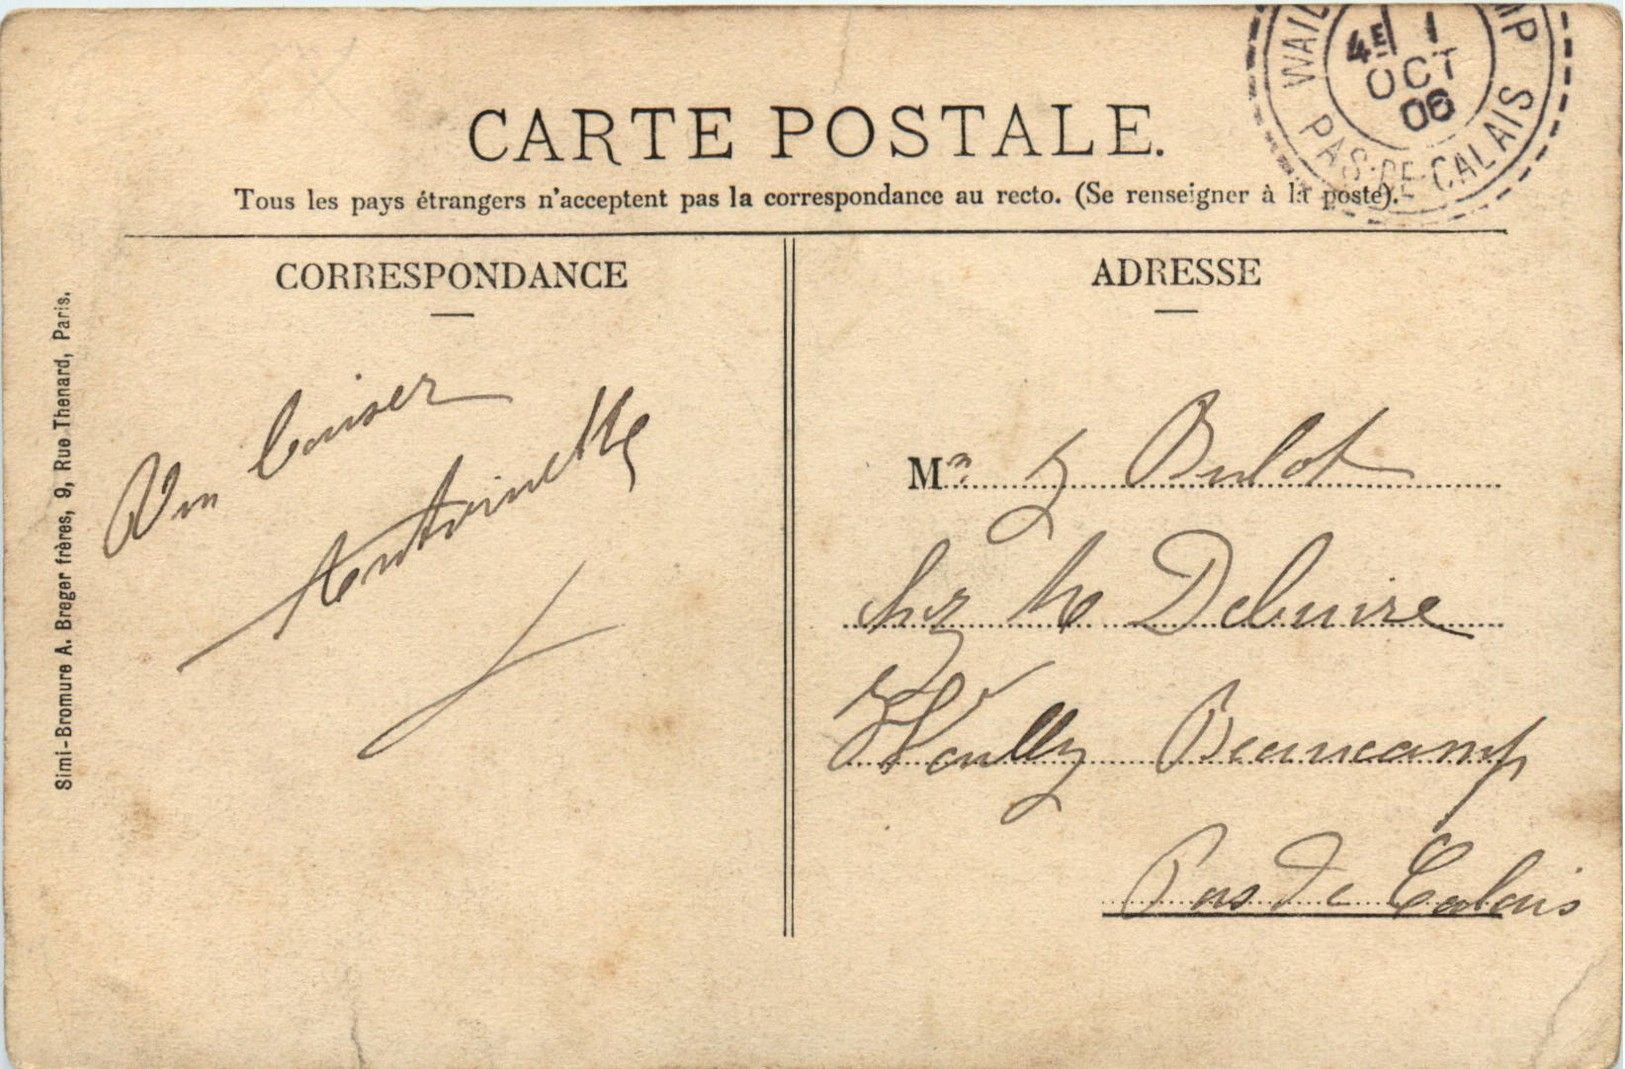 CARTE POSTALE.
Tous les pays étrangers n'acceptent pas la correspondance au recto. (Se renseigner à la poste).
WAIL MP
4E 1
OCT
06
PAS-DE-CALAIS
CORRESPONDANCE
Un baiser
Antoinette
ADRESSE
M Bulot
chez Me Debuire
Wailly Beaucamp
Pas de Calais
Simi-Bromure A. Breger frères, 9, Rue Thenard, Paris.